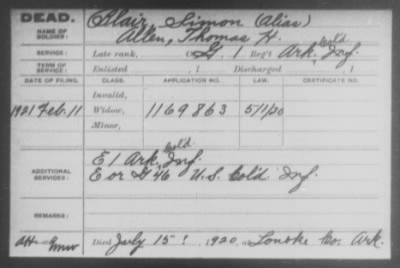 DEAD.
NAME OF SOLDIER:
Blair, Simon (Alias)
Allen, Thomas H.
SERVICE:
Late rank, Co G. 1 Reg't Ark. Cold Inf.
TERM OF SERVICE:
Enlisted , 1 Discharged , 1
DATE OF FILING. CLASS. APPLICATION NO. LAW. CERTIFICATE NO.
Invalid,
1921 Feb. 11 Widow, 1169863 5/1/20
Minor,
ADDITIONAL SERVICES:
E 1 Ark. Cold Inf.
E or G 46 U.S. Cold Inf.
REMARKS:
Died July 15 1920, at Lonoke Co. Ark.